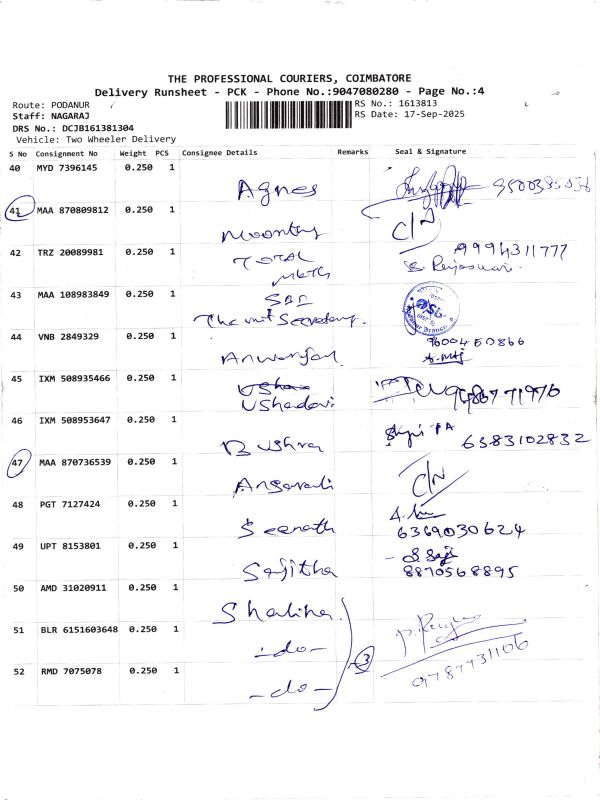 THE PROFESSIONAL COURIERS, COIMBATORE
Delivery Runsheet - PCK - Phone No.:9047080280 - Page No.:4
Route: PODANUR
RS No.: 1613813
Staff: NAGARAJ
RS Date: 17-Sep-2025
DRS No.: DCJB161381304
Vehicle: Two Wheeler Delivery
S No Consignment No Weight PCS Consignee Details Remarks Seal & Signature
40 MYD 7396145 0.250 1
Agnes
41 MAA 870809812 0.250 1
Moorthy C/N
42 TRZ 20089981 0.250 1
TOTAL 9994311777
43 MAA 108983849 0.250 1
SBI
The unit Secretary.
44 VNB 2849329 0.250 1
45 IXM 508935466 0.250 1
Ushadevi
46 IXM 508953647 0.250 1
Bushra 6383102832
47 MAA 870736539 0.250 1
Ansarali C/N
48 PGT 7127424 0.250 1
6369030624
49 UPT 8153801 0.250 1
Sajitha 8870568895
50 AMD 31020911 0.250 1
51 BLR 6151603648 0.250 1
-do- 3
52 RMD 7075078 0.250 1
-do- 9787731106